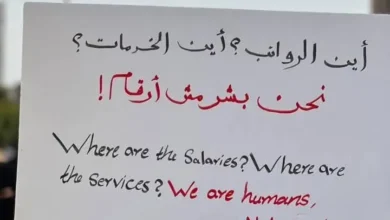 أين الرواتب؟ أين الخدمات؟
نحن بشر مش أرقام!
Where are the Salaries? Where are
the Services? We are humans,